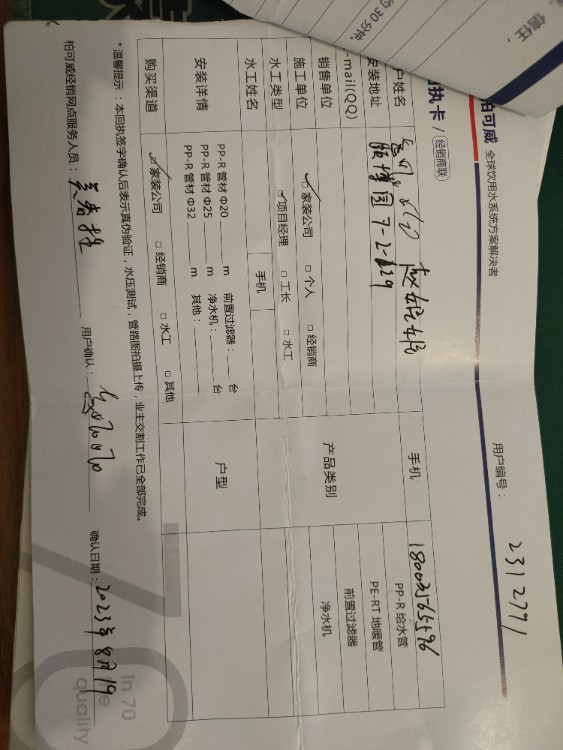 信任,
约30分钟,
柏可威 全球饮用水系统方案解决者
回执卡 / 经销商联
用户编号: 2312791
户姓名
手机
安装地址 颐博园7-2-
产品类别
PP-R 给水管
mail(QQ)
PE-RT 地暖管
销售单位 ☑家装公司 □ 个人 □ 经销商
前置过滤器
施工单位
净水机
水工类型 ☑项目经理 □ 工长 □ 水工
水工姓名
手机
安装详情
PP-R 管材 Φ20 m 前置过滤器: 台
PP-R 管材 Φ25 m 净水机: 台
PP-R 管材 Φ32 m 其他:
户型
购买渠道 ☑家装公司 □ 经销商 □ 水工 □ 其他
*温馨提示:本回执签字确认后表示真伪验证,水压测试,管路图拍摄上传,业主交割工作已全部完成。
柏可威经销网点服务人员: 用户确认: 确认日期: 2023年8月19
70
in 70
quality